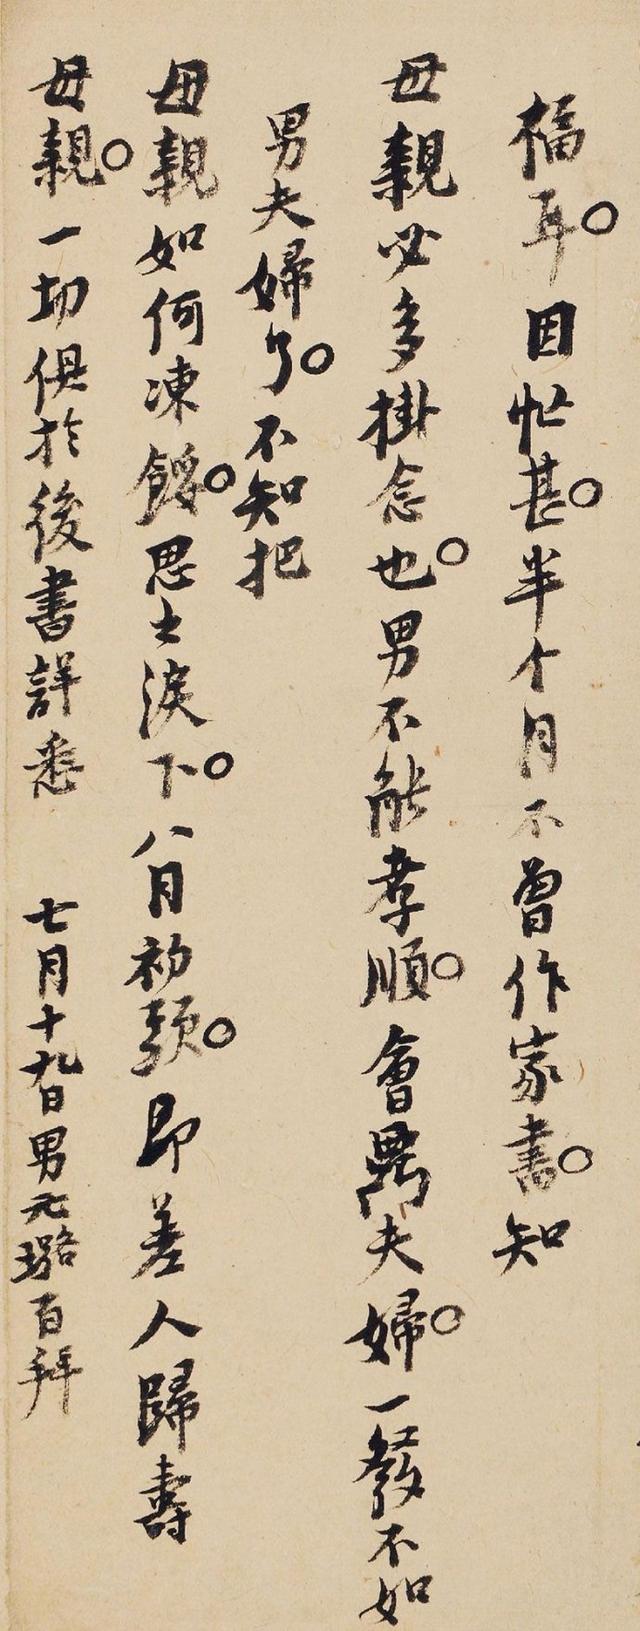 福耳○因忙甚○半个月不曾作家書○知
母親必多掛念也○男不能孝順○會鼎夫婦○一發不如
男夫婦了○不知把
母親如何凍餒○思之淚下○八月初頭○即差人歸壽
母親○一切俱於後書詳悉 七月十九日男元璐百拜